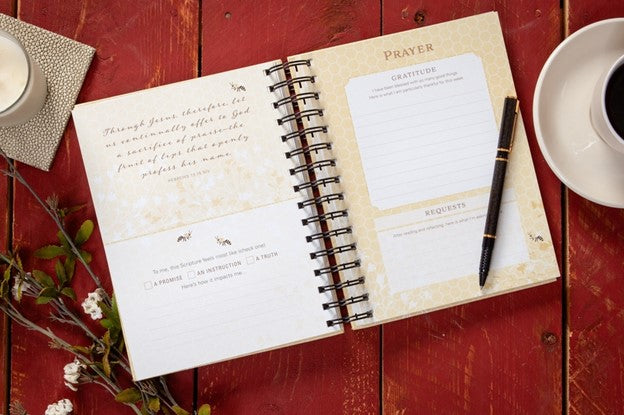 Through Jesus, therefore, let
us continually offer to God
a sacrifice of praise–the
fruit of lips that openly
profess his name.
HEBREWS 13:15 NIV
To me, this Scripture feels most like (check one)
A PROMISE AN INSTRUCTION A TRUTH
Here's how it impacts me...
PRAYER
GRATITUDE
I have been blessed with so many good things.
Here is what I am particularly thankful for this week.
REQUESTS
After reading and reflecting, here is what I'm